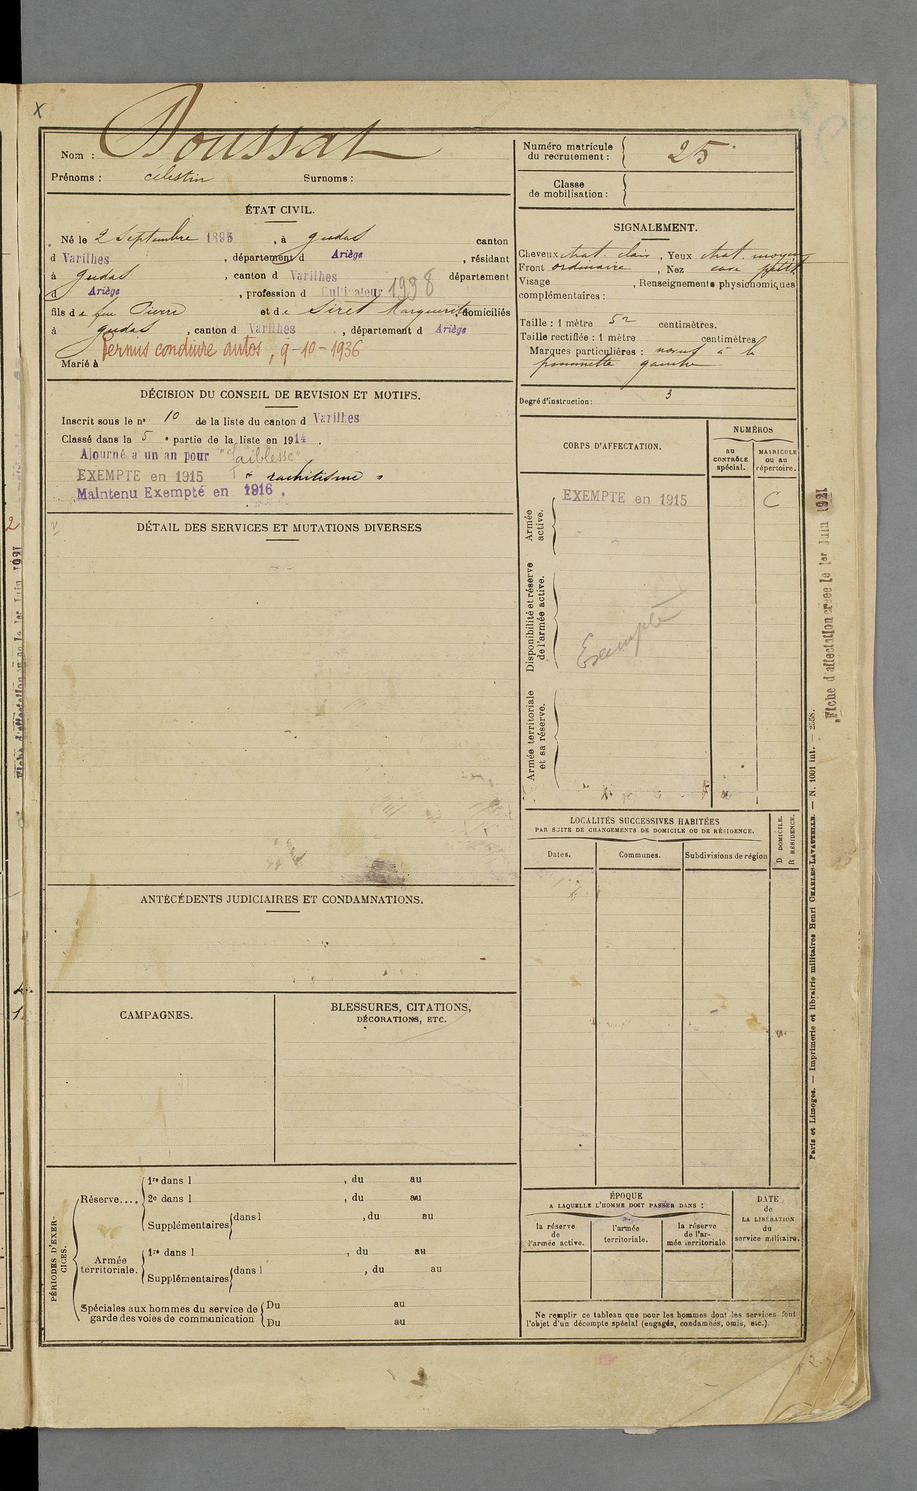 X
Nom : Doussat
Prénoms : célestin Surnoms :
Numéro matricule du recrutement : 25
Classe de mobilisation :
ÉTAT CIVIL.
Né le 2 Septembre 1895, à gudas canton
d Varilhes, département d Ariège, résidant
à gudas, canton d Varilhes département
d Ariège, profession d Cultivateur 1938
fils de feu Pierre et de Siret Marguerite domiciliés
à gudas, canton d Varilhes, département d Ariège
Permis conduire autos, 9-10-1936
Marié à
SIGNALEMENT.
Cheveux chat. clair, Yeux chat. moyens
Front ordinaire, Nez cave petit
Visage , Renseignements physionomiques
complémentaires :
Taille : 1 mètre 52 centimètres.
Taille rectifiée : 1 mètre centimètres
Marques particulières : nævus à la
pommette gauche
Degré d'instruction : 3
DÉCISION DU CONSEIL DE REVISION ET MOTIFS.
Inscrit sous le nº 10 de la liste du canton d Varilhes
Classé dans la 5e partie de la liste en 1914.
Ajourné a un an pour "faiblesse"
EXEMPTE en 1915 pr rachitisme
Maintenu Exempté en 1916.
DÉTAIL DES SERVICES ET MUTATIONS DIVERSES
CORPS D'AFFECTATION.
NUMÉROS
au CONTRÔLE spécial.
MATRICULE ou au répertoire.
Armée active.
EXEMPTE en 1915
C
Disponibilité et réserve de l'armée active.
Exempté
Armée territoriale et sa réserve.
LOCALITÉS SUCCESSIVES HABITÉES
PAR SUITE DE CHANGEMENTS DE DOMICILE OU DE RÉSIDENCE.
Dates. Communes. Subdivisions de région
D DOMICILE. R RÉSIDENCE.
ANTÉCÉDENTS JUDICIAIRES ET CONDAMNATIONS.
CAMPAGNES.
BLESSURES, CITATIONS,
DÉCORATIONS, ETC.
PÉRIODES D'EXERCICES.
Réserve.... 1re dans l , du au
2e dans l , du au
Supplémentaires dans l , du au
Armée territoriale. 1re dans l , du au
Supplémentaires dans l , du au
Spéciales aux hommes du service de garde des voies de communication Du au
Du au
ÉPOQUE
A LAQUELLE L'HOMME DOIT PASSER DANS :
la réserve de l'armée active.
l'armée territoriale.
la réserve de l'armée territoriale
DATE de LA LIBÉRATION du service militaire.
Ne remplir ce tableau que pour les hommes dont les services font
l'objet d'un décompte spécial (engagés, condamnés, omis, etc.).
Fiche d'affectation créée le 1er Juin 1921
Paris et Limoges. — Imprimerie et librairie militaires Henri CHARLES-LAVAUZELLE. — N. 1001 int. — 2558.